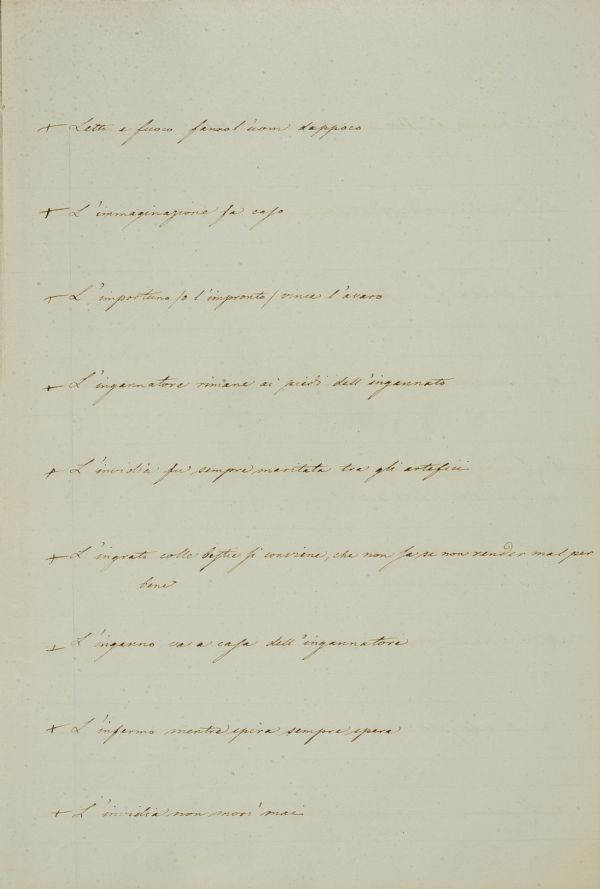 + Letto e fuoco fanno l'uom dappoco
+ L'immaginazione fa caso
+ L'importuno /o l'impronto/ vince l'avaro
+ L'ingannatore rimane ai piedi dell'ingannato
+ L'invidia fu sempre maritata tra gli artefici
+ L'ingrato colle bestie si conviene, che non sa, se non render mal per
bene
+ L'inganno va a casa dell'ingannatore
+ L'infermo mentre spira sempre spera
+ L'invidia non morì mai